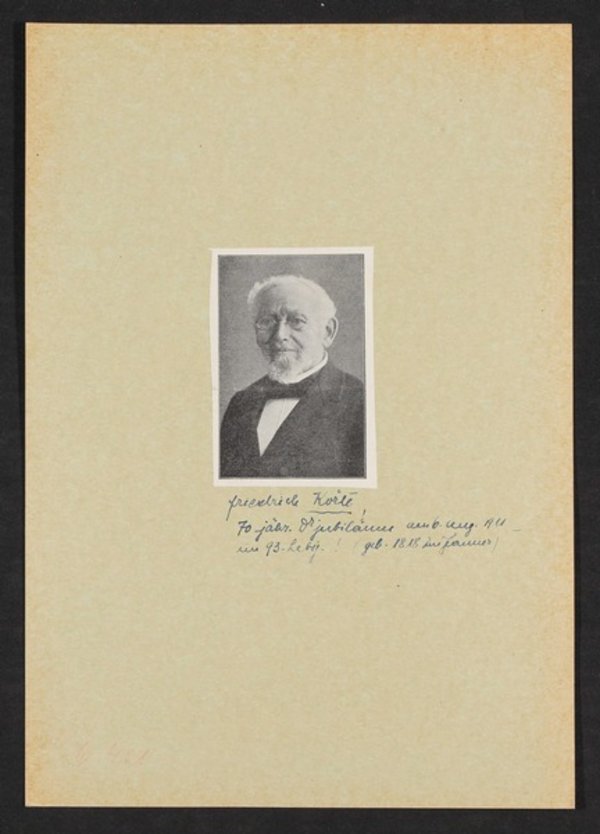 Friedrich Körte
70 jähr. Dr jubiläum am 6. Aug. 1911
im 93. Lebj.! (geb. 1818 im Januar)